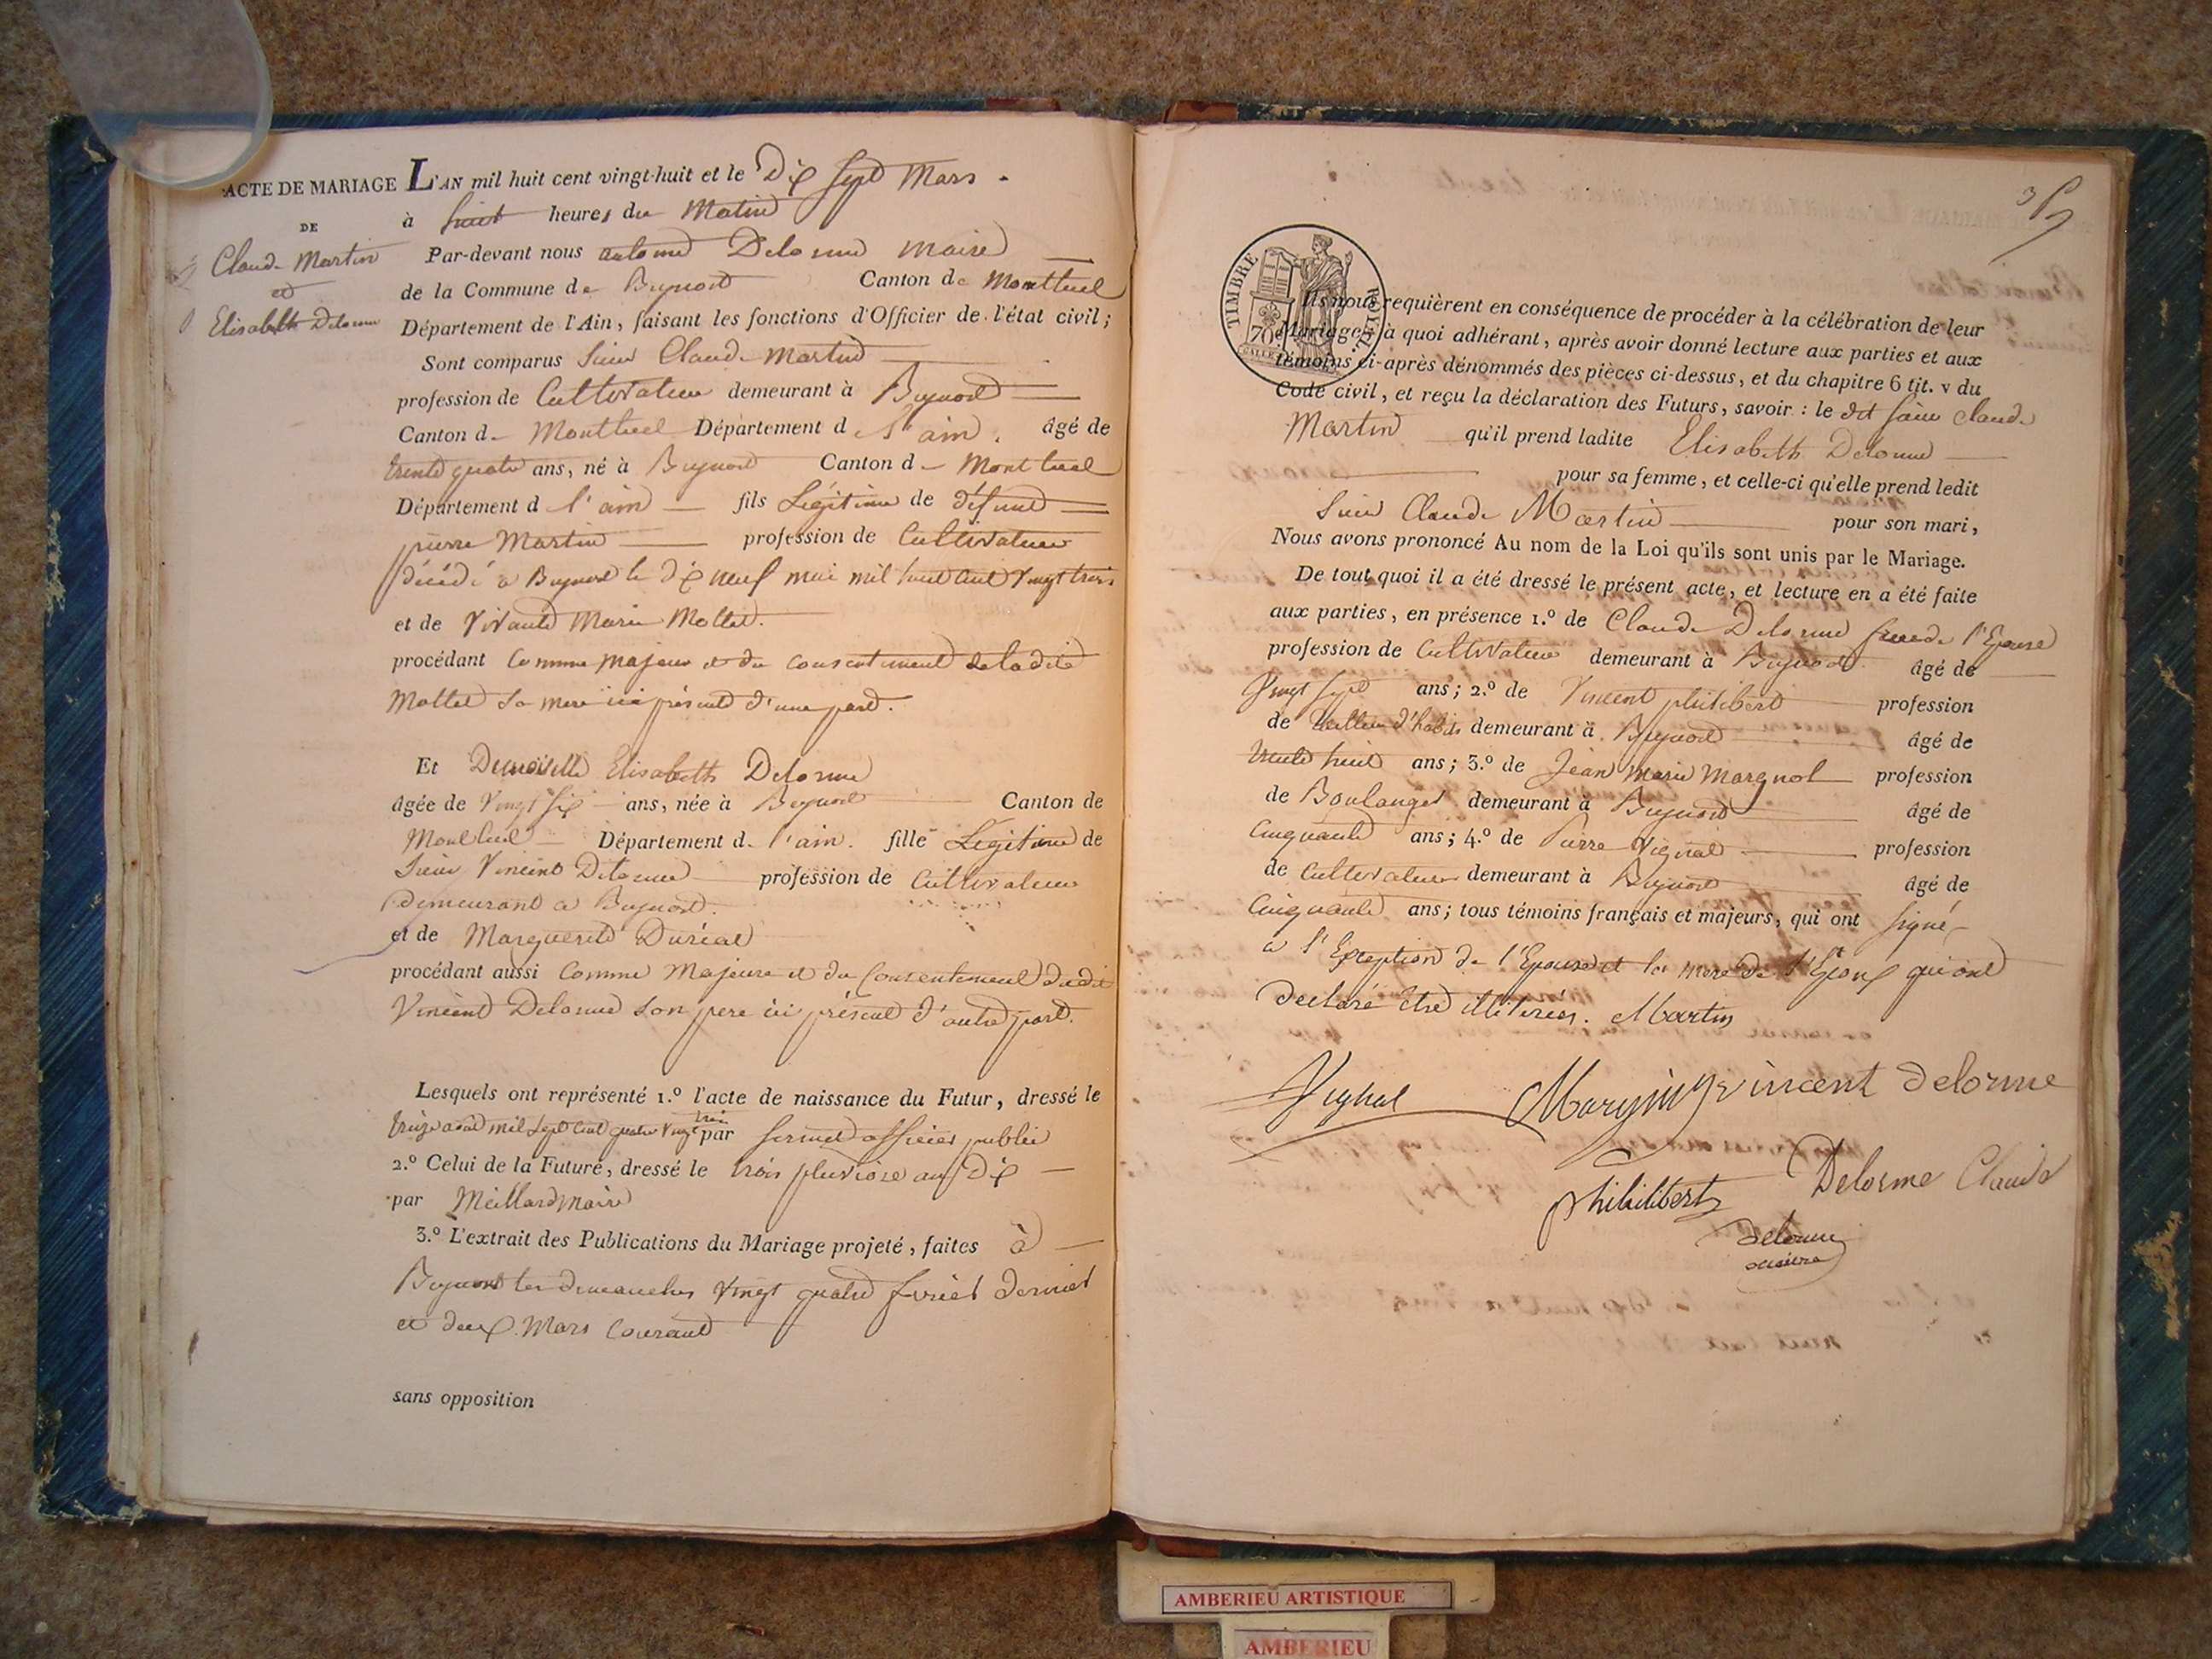 ACTE DE MARIAGE L'AN mil huit cent vingt-huit et le Dix sept Mars
DE
Claude Martin
et
Elisabeth Delorme
à huit heures du Matin
Par-devant nous antoine Delorme maire
de la Commune de Beynost Canton de Montluel
Département de l'Ain, faisant les fonctions d'Officier de l'état civil;
Sont comparus Sieur Claude Martin
profession de Cultivateur demeurant à Beynost
Canton d Montluel Département d l'ain. âgé de
trente quatre ans, né à Beynost Canton d Montluel
Département d l'ain fils Légitime de défunt
pierre Martin profession de Cultivateur
décédé à Beynost le dix neuf mai mil huit cent vingt trois
et de Vivante Marie Mollet.
procédant Comme majeur et du consentement de ladite
Mollet Sa mere ici présente d'une part.
Et Demoiselle Elisabeth Delorme
âgée de Vingt six ans, née à Beynost Canton de
Montluel Département d. l'ain. fille Légitime de
Sieur Vincent Delorme profession de Cultivateur
Demeurant a Beynost.
et de Marguerite Duréal
procédant aussi Comme Majeure et du Consentement dudit
Vincent Delorme son pere ici présent d'autre part.
Lesquels ont représenté 1.º l'acte de naissance du Futur, dressé le
treize août mil Sept Cent quatre Vingt treize par officier public
2.º Celui de la Future, dressé le trois pluviose an Dix
par Meillard maire
3.º L'extrait des Publications du Mariage projeté, faites à
Beynost les dimanches vingt quatre fevrier Dernier
et deux Mars Courant
sans opposition
TIMBRE ROYAL
70
Ils nous requièrent en conséquence de procéder à la célébration de leur
Mariage; à quoi adhérant, après avoir donné lecture aux parties et aux
témoins ci-après dénommés des pièces ci-dessus, et du chapitre 6 tit. v du
Code civil, et reçu la déclaration des Futurs, savoir: le dit Sieur Claude
Martin qu'il prend ladite Elisabeth Delorme
pour sa femme, et celle-ci qu'elle prend ledit
Sieur Claude Martin pour son mari,
Nous avons prononcé Au nom de la Loi qu'ils sont unis par le Mariage.
De tout quoi il a été dressé le présent acte, et lecture en a été faite
aux parties, en présence 1.º de Claude Delorme frere de l'Epouse
profession de Cultivateur demeurant à Beynost âgé de
Vingt sept ans; 2.º de Vincent philibert profession
de tailleur d'habits demeurant à Beynost âgé de
trente huit ans; 3.º de Jean Marie Margnol profession
de Boulanger demeurant à Beynost âgé de
Cinquante ans; 4.º de Pierre Vignal profession
de Cultivateur demeurant à Beynost âgé de
Cinquante ans; tous témoins français et majeurs, qui ont Signé
a l'Exception de l'Epouse et la mere de l'Epoux qui ont
Declaré Etre illitérées. Martin
Vighal vincent delorme
philibert Delorme Claude
delorme
maire
AMBERIEU ARTISTIQUE
AMBERIEU